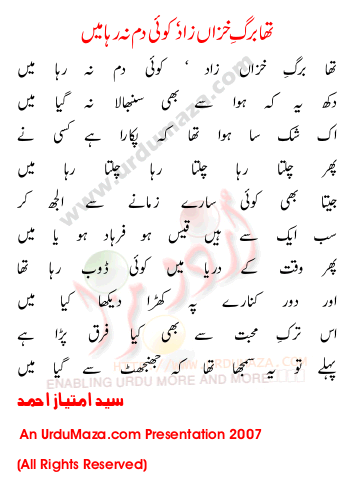 تھا برگِ خزاں زاد ‘ کوئی دم نہ رہا میں
تھا برگِ خزاں زاد ‘ کوئی دم نہ رہا میں
دکھ یہ کہ ہوا سے بھی سنبھالا نہ گیا میں
اک شک سا ہوا تھا کہ پکارا ہے کسی نے
پھر چلتا رہا چلتا رہا چلتا رہا میں
جیتا بھی کوئی سارے زمانے سے الجھ کر
سب ایک سے ہیں قیس ہو فرہاد ہو یا میں
پھر وقت کے دریا میں کوئی ڈوب رہا تھا
اور دور کنارے پہ کھڑا دیکھا کیا میں
اس ترکِ محبت سے بھی کیا فرق پڑا ہے
پہلے تو یہ سمجھا تھا کہ جھنجھٹ سے گیا میں
سید امتیاز احمد
An UrduMaza.com Presentation 2007
(All Rights Reserved)
www.urdumaza.com
اردو مزا
HTTP://WWW.URDUMAZA.COM
ENABLING URDU MORE AND MORE